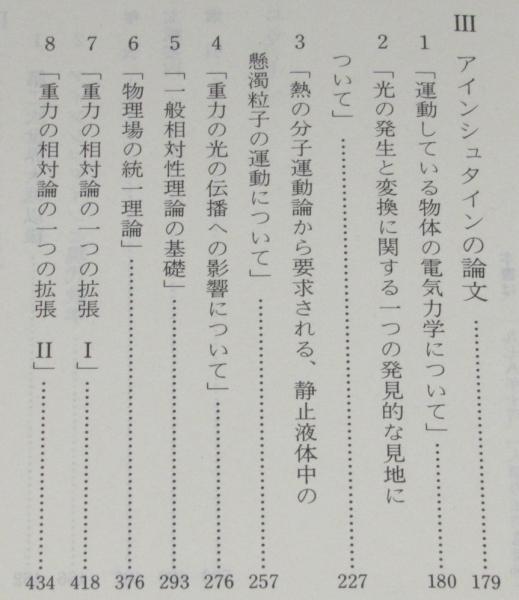 III アインシュタインの論文 …………………… 179
1 「運動している物体の電気力学について」 …………… 180
2 「光の発生と変換に関する一つの発見的な見地に
ついて」 …………………………… 227
3 「熱の分子運動論から要求される、静止液体中の
懸濁粒子の運動について」 …………………… 257
4 「重力の光の伝播への影響について」 …………… 276
5 「一般相対性理論の基礎」 …………………… 293
6 「物理場の統一理論」 …………………… 376
7 「重力の相対論の一つの拡張 I」 ……………… 418
8 「重力の相対論の一つの拡張 II」 ……………… 434